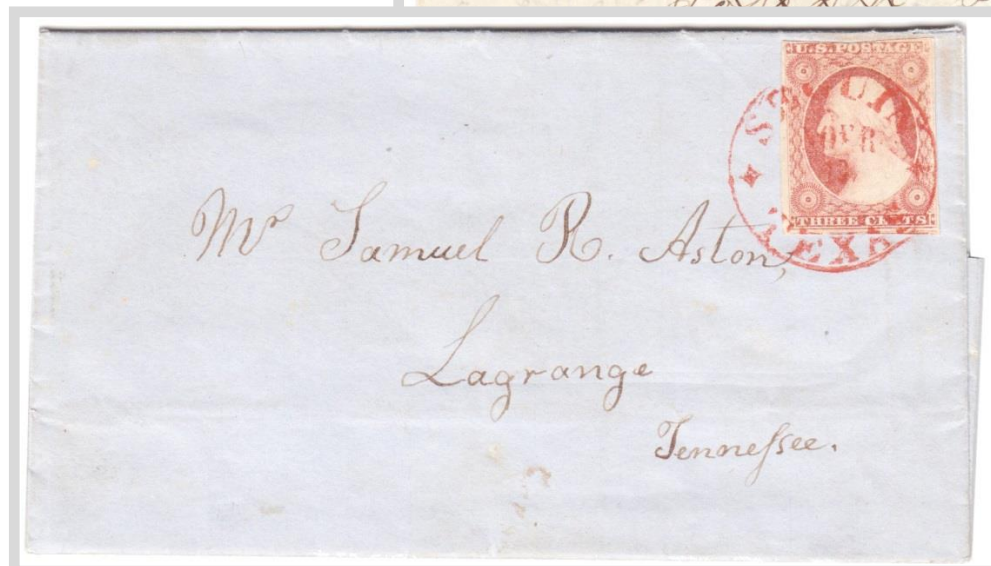 U.S. POSTAGE
THREE CENTS
TEXAS
Mr Samuel R. Aston,
Lagrange
Tennessee.